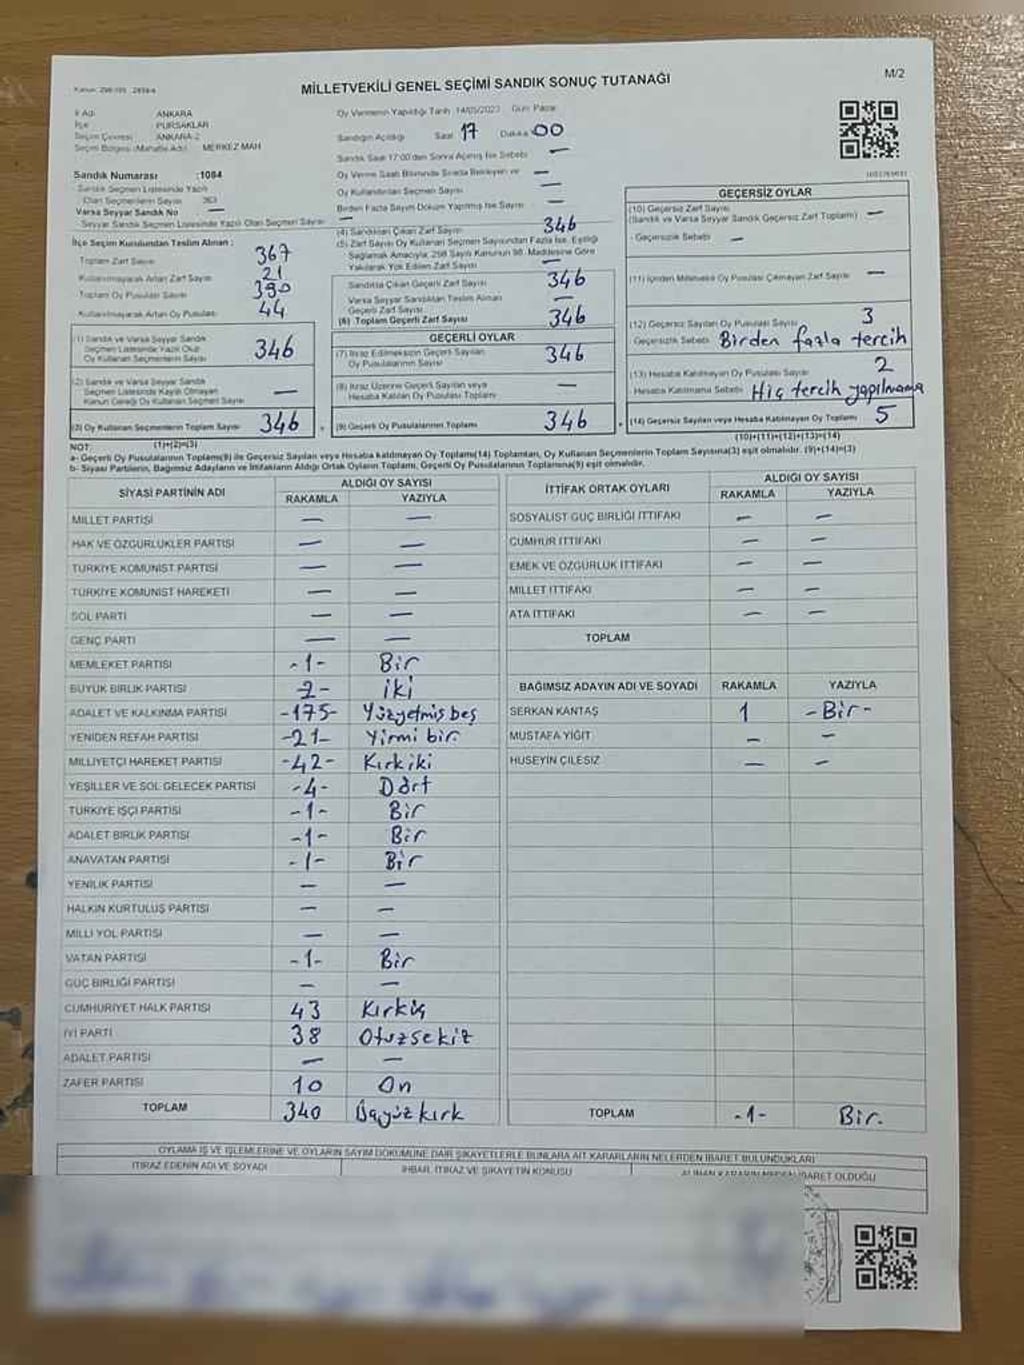 M/2
MİLLETVEKİLİ GENEL SEÇİMİ SANDIK SONUÇ TUTANAĞI
İl Adı ANKARA
İlçe PURSAKLAR
Seçim Çevresi ANKARA-2
Seçim Bölgesi (Mahalle Adı) MERKEZ MAH
Sandık Numarası :1084
Sandık Seçmen Listesinde Yazılı
Olan Seçmenlerin Sayısı 363
Varsa Seyyar Sandık No —
Seyyar Sandık Seçmen Listesinde Yazılı Olan Seçmen Sayısı —
İlçe Seçim Kurulundan Teslim Alınan :
Toplam Zarf Sayısı 367
Kullanılmayarak Artan Zarf Sayısı 21
Toplam Oy Pusulası Sayısı 390
Kullanılmayarak Artan Oy Pusulası 44
(1) Sandık ve Varsa Seyyar Sandık
Seçmen Listesinde Yazılı Olup
Oy Kullanan Seçmenlerin Sayısı 346
(2) Sandık ve Varsa Seyyar Sandık
Seçmen Listesinde Kaydı Olmayan
Kanun Gereği Oy Kullanan Seçmen Sayısı —
(3) Oy Kullanan Seçmenlerin Toplam Sayısı 346
(1)+(2)=(3)
Oy Vermenin Yapıldığı Tarih 14/05/2023 Gün Pazar
Sandığın Açıldığı Saat 17 Dakika 00
Sandık Saat 17:00'den Sonra Açılmış İse Sebebi —
Oy Verme Saati Bitiminde Sırada Bekleyen ve —
Oy Kullandırılan Seçmen Sayısı —
Birden Fazla Sayım Döküm Yapılmış İse Sayısı —
(4) Sandıktan Çıkan Zarf Sayısı 346
(5) Zarf Sayısı Oy Kullanan Seçmen Sayısından Fazla İse, Eşitliği
Sağlamak Amacıyla, 298 Sayılı Kanunun 98. Maddesine Göre
Yakılarak Yok Edilen Zarf Sayısı —
Sandıkta Çıkan Geçerli Zarf Sayısı 346
Varsa Seyyar Sandıktan Teslim Alınan
Geçerli Zarf Sayısı —
(6) Toplam Geçerli Zarf Sayısı 346
GEÇERLİ OYLAR
(7) İtiraz Edilmeksizin Geçerli Sayılan
Oy Pusulasının Sayısı 346
(8) İtiraz Üzerine Geçerli Sayılan veya
Hesaba Katılan Oy Pusulası Toplamı —
(9) Geçerli Oy Pusulalarının Toplamı 346
GEÇERSİZ OYLAR
(10) Geçersiz Zarf Sayısı
(Sandık ve Varsa Seyyar Sandık Geçersiz Zarf Toplamı) —
Geçersizlik Sebebi —
(11) İçinden Milletvekili Oy Pusulası Çıkmayan Zarf Sayısı —
(12) Geçersiz Sayılan Oy Pusulası Sayısı 3
Geçersizlik Sebebi Birden fazla tercih
(13) Hesaba Katılmayan Oy Pusulası Sayısı 2
Hesaba Katılmama Sebebi Hiç tercih yapılmama
(14) Geçersiz Sayılan veya Hesaba Katılmayan Oy Toplamı 5
(10)+(11)+(12)+(13)=(14)
NOT:
a- Geçerli Oy Pusulalarının Toplamı(9) ile Geçersiz Sayılan veya Hesaba katılmayan Oy Toplamı(14) Toplamları, Oy Kullanan Seçmenlerin Toplam Sayısına(3) eşit olmalıdır. (9)+(14)=(3)
b- Siyasi Partilerin, Bağımsız Adayların ve İttifakların Aldığı Ortak Oyların Toplamı, Geçerli Oy Pusulalarının Toplamına(9) eşit olmalıdır.
SİYASİ PARTİNİN ADI ALDIĞI OY SAYISI
RAKAMLA YAZIYLA
MİLLET PARTİSİ — —
HAK VE ÖZGÜRLÜKLER PARTİSİ — —
TÜRKİYE KOMÜNİST PARTİSİ — —
TÜRKİYE KOMÜNİST HAREKETİ — —
SOL PARTİ — —
GENÇ PARTİ — —
MEMLEKET PARTİSİ -1- Bir
BÜYÜK BİRLİK PARTİSİ 2- iki
ADALET VE KALKINMA PARTİSİ -175- Yüzyetmiş beş
YENİDEN REFAH PARTİSİ -21- Yirmi bir
MİLLİYETÇİ HAREKET PARTİSİ -42- Kırkiki
YEŞİLLER VE SOL GELECEK PARTİSİ -4- Dört
TÜRKİYE İŞÇİ PARTİSİ -1- Bir
ADALET BİRLİK PARTİSİ -1- Bir
ANAVATAN PARTİSİ -1- Bir
YENİLİK PARTİSİ — —
HALKIN KURTULUŞ PARTİSİ — —
MİLLİ YOL PARTİSİ — —
VATAN PARTİSİ -1- Bir
GÜÇ BİRLİĞİ PARTİSİ — —
CUMHURİYET HALK PARTİSİ 43 Kırküç
İYİ PARTİ 38 Otuzsekiz
ADALET PARTİSİ — —
ZAFER PARTİSİ 10 On
TOPLAM 340 Üçyüzkırk
İTTİFAK ORTAK OYLARI ALDIĞI OY SAYISI
RAKAMLA YAZIYLA
SOSYALİST GÜÇ BİRLİĞİ İTTİFAKI — —
CUMHUR İTTİFAKI — —
EMEK VE ÖZGÜRLÜK İTTİFAKI — —
MİLLET İTTİFAKI — —
ATA İTTİFAKI — —
TOPLAM
BAĞIMSIZ ADAYIN ADI VE SOYADI RAKAMLA YAZIYLA
SERKAN KANTAŞ 1 -Bir-
MUSTAFA YİĞİT — —
HÜSEYİN ÇİLESİZ — —
TOPLAM -1- Bir.
OYLAMA İŞ VE İŞLEMLERİNE VE OYLARIN SAYIM DÖKÜMÜNE DAİR ŞİKAYETLERLE BUNLARA AİT KARARLARIN NELERDEN İBARET BULUNDUKLARI
İTİRAZ EDENİN ADI VE SOYADI İHBAR, İTİRAZ VE ŞİKAYETİN KONUSU